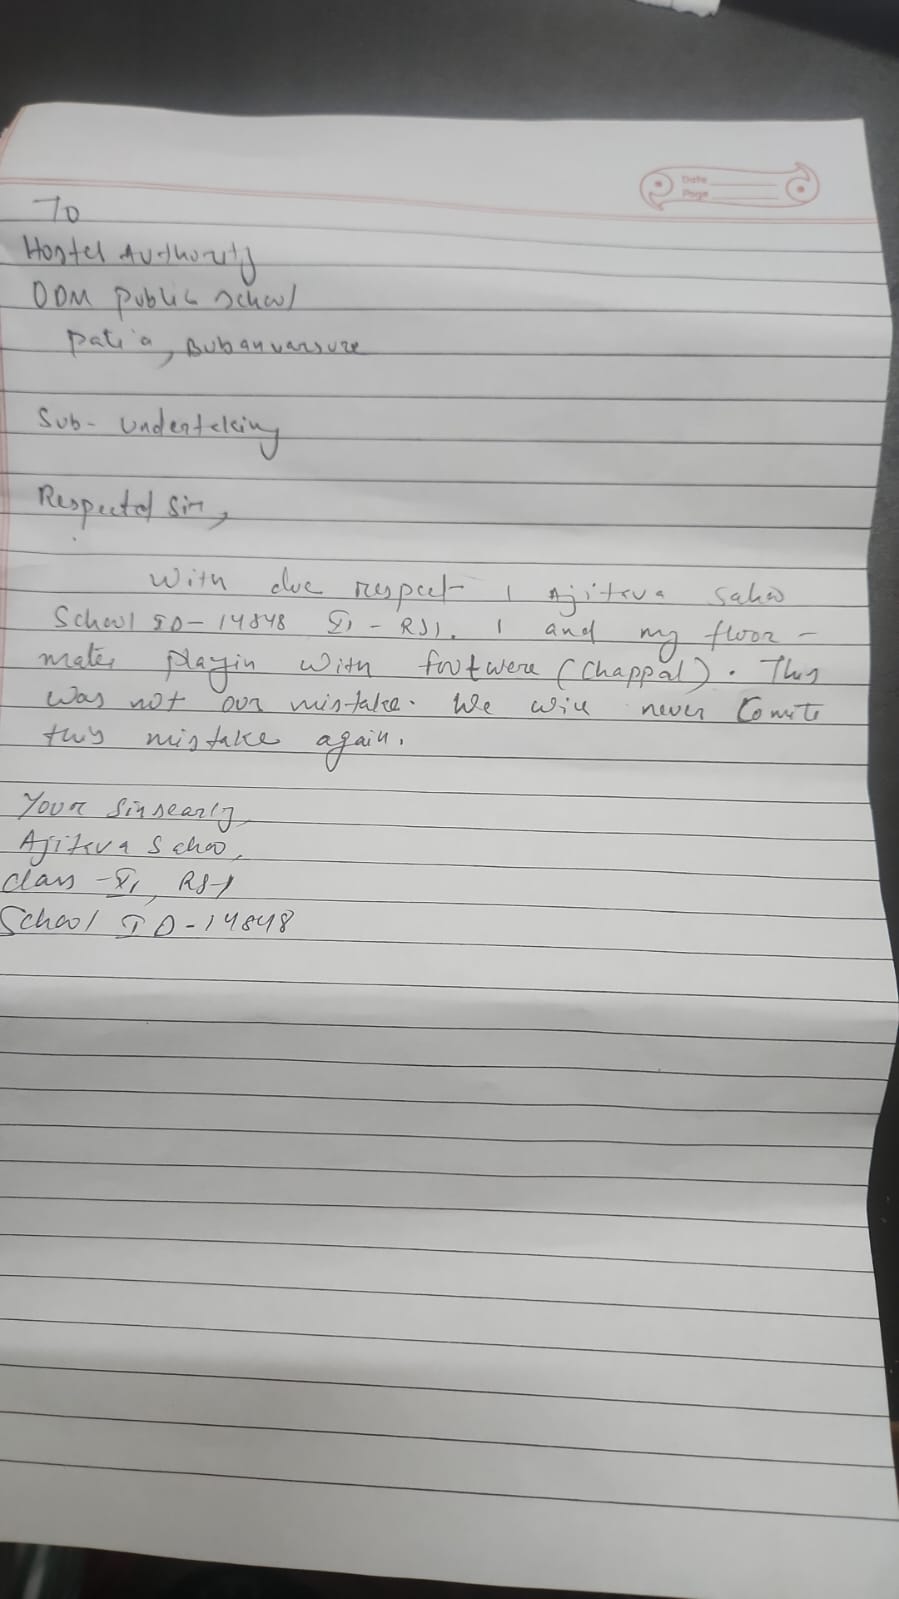 Date
Page
To
Hostel Authority
ODM public school
patia, Bubanuarsure
Sub- Undertelcing
Respected Sir,
With due respect I Ajiteva Sahoo
School ID- 14848 XI - RS1. I and my floor -
mates playin with footwere (Chappal). This
was not our mistake. We will never Comite
this mistake again.
Your Sinsearly
Ajiteva Sahoo,
class - XI, RS-1
School ID-14848